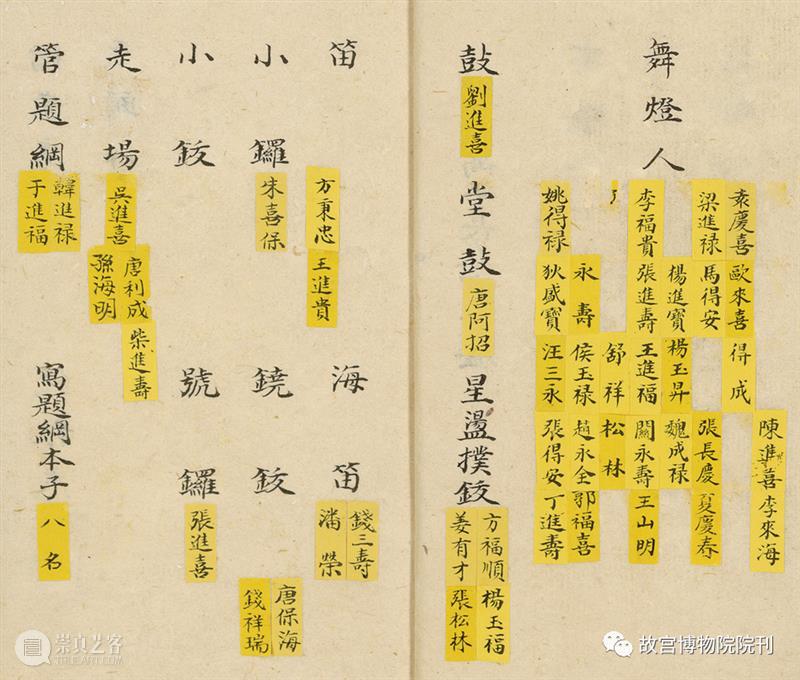 舞燈人
陳進喜 李來海
袁慶喜 歐來喜 得成
梁進禄 馬得安 張長慶 夏慶春
楊進寶 楊玉昇 魏成禄
李福貴 張進壽 王進福 關永壽 王山明
舒祥 松林
永壽 侯玉禄 趙永全 郭福喜
姚得禄 狄盛寶 汪三永 張得安 丁進壽
鼓 劉進喜 堂鼓 唐阿招 星盪撲鈸
方福順 楊玉福
姜有才 張松林
笛 方秉忠 王進貴 海笛
錢三壽
潘榮
小鑼 朱喜保 鐃鈸
唐保海
錢祥瑞
小鈸 號鑼 張進喜
走場 吳進喜
唐利成 柴進壽
孫海明
管題綱
韓進禄
于進福
寫題綱本子 八名
崇真艺客
TRUEART.COM
故宫博物院院刊